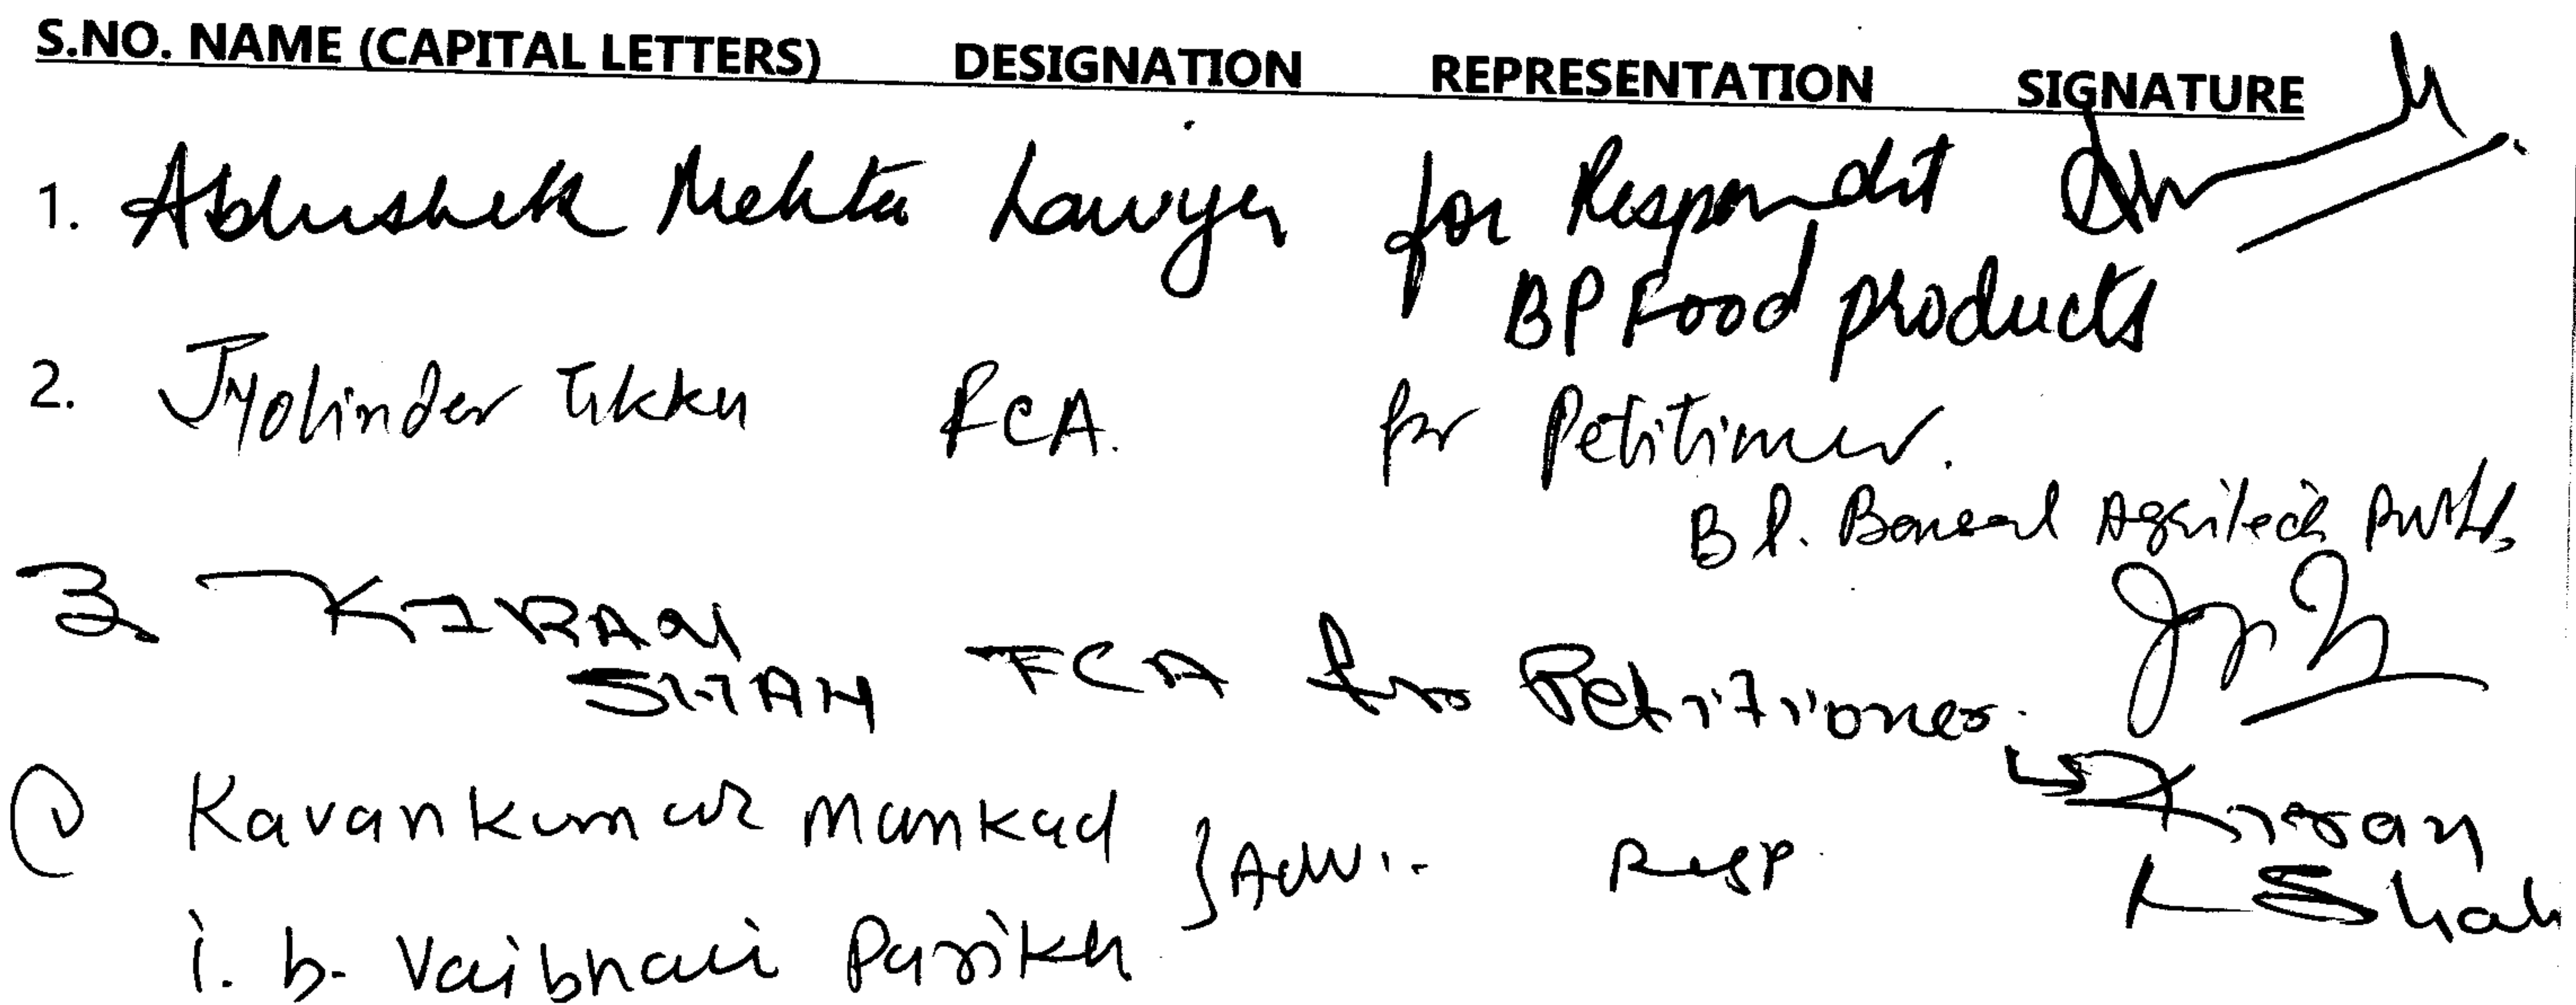 S.NO. NAME (CAPITAL LETTERS) DESIGNATION REPRESENTATION SIGNATURE
1. Abhishek Mehta Lawyer for Respondent
BP Food products
2. Jyotinder Tikku FCA. for Petitioner.
B P. Bansal Agritech Pvt Ltd.
3 KIRAN
SHAH FCA for Petitioner.
Kavankumar Mankad } Adv. Resp.
i. b. Vaibhavi Parikh
Kiran
K Shah